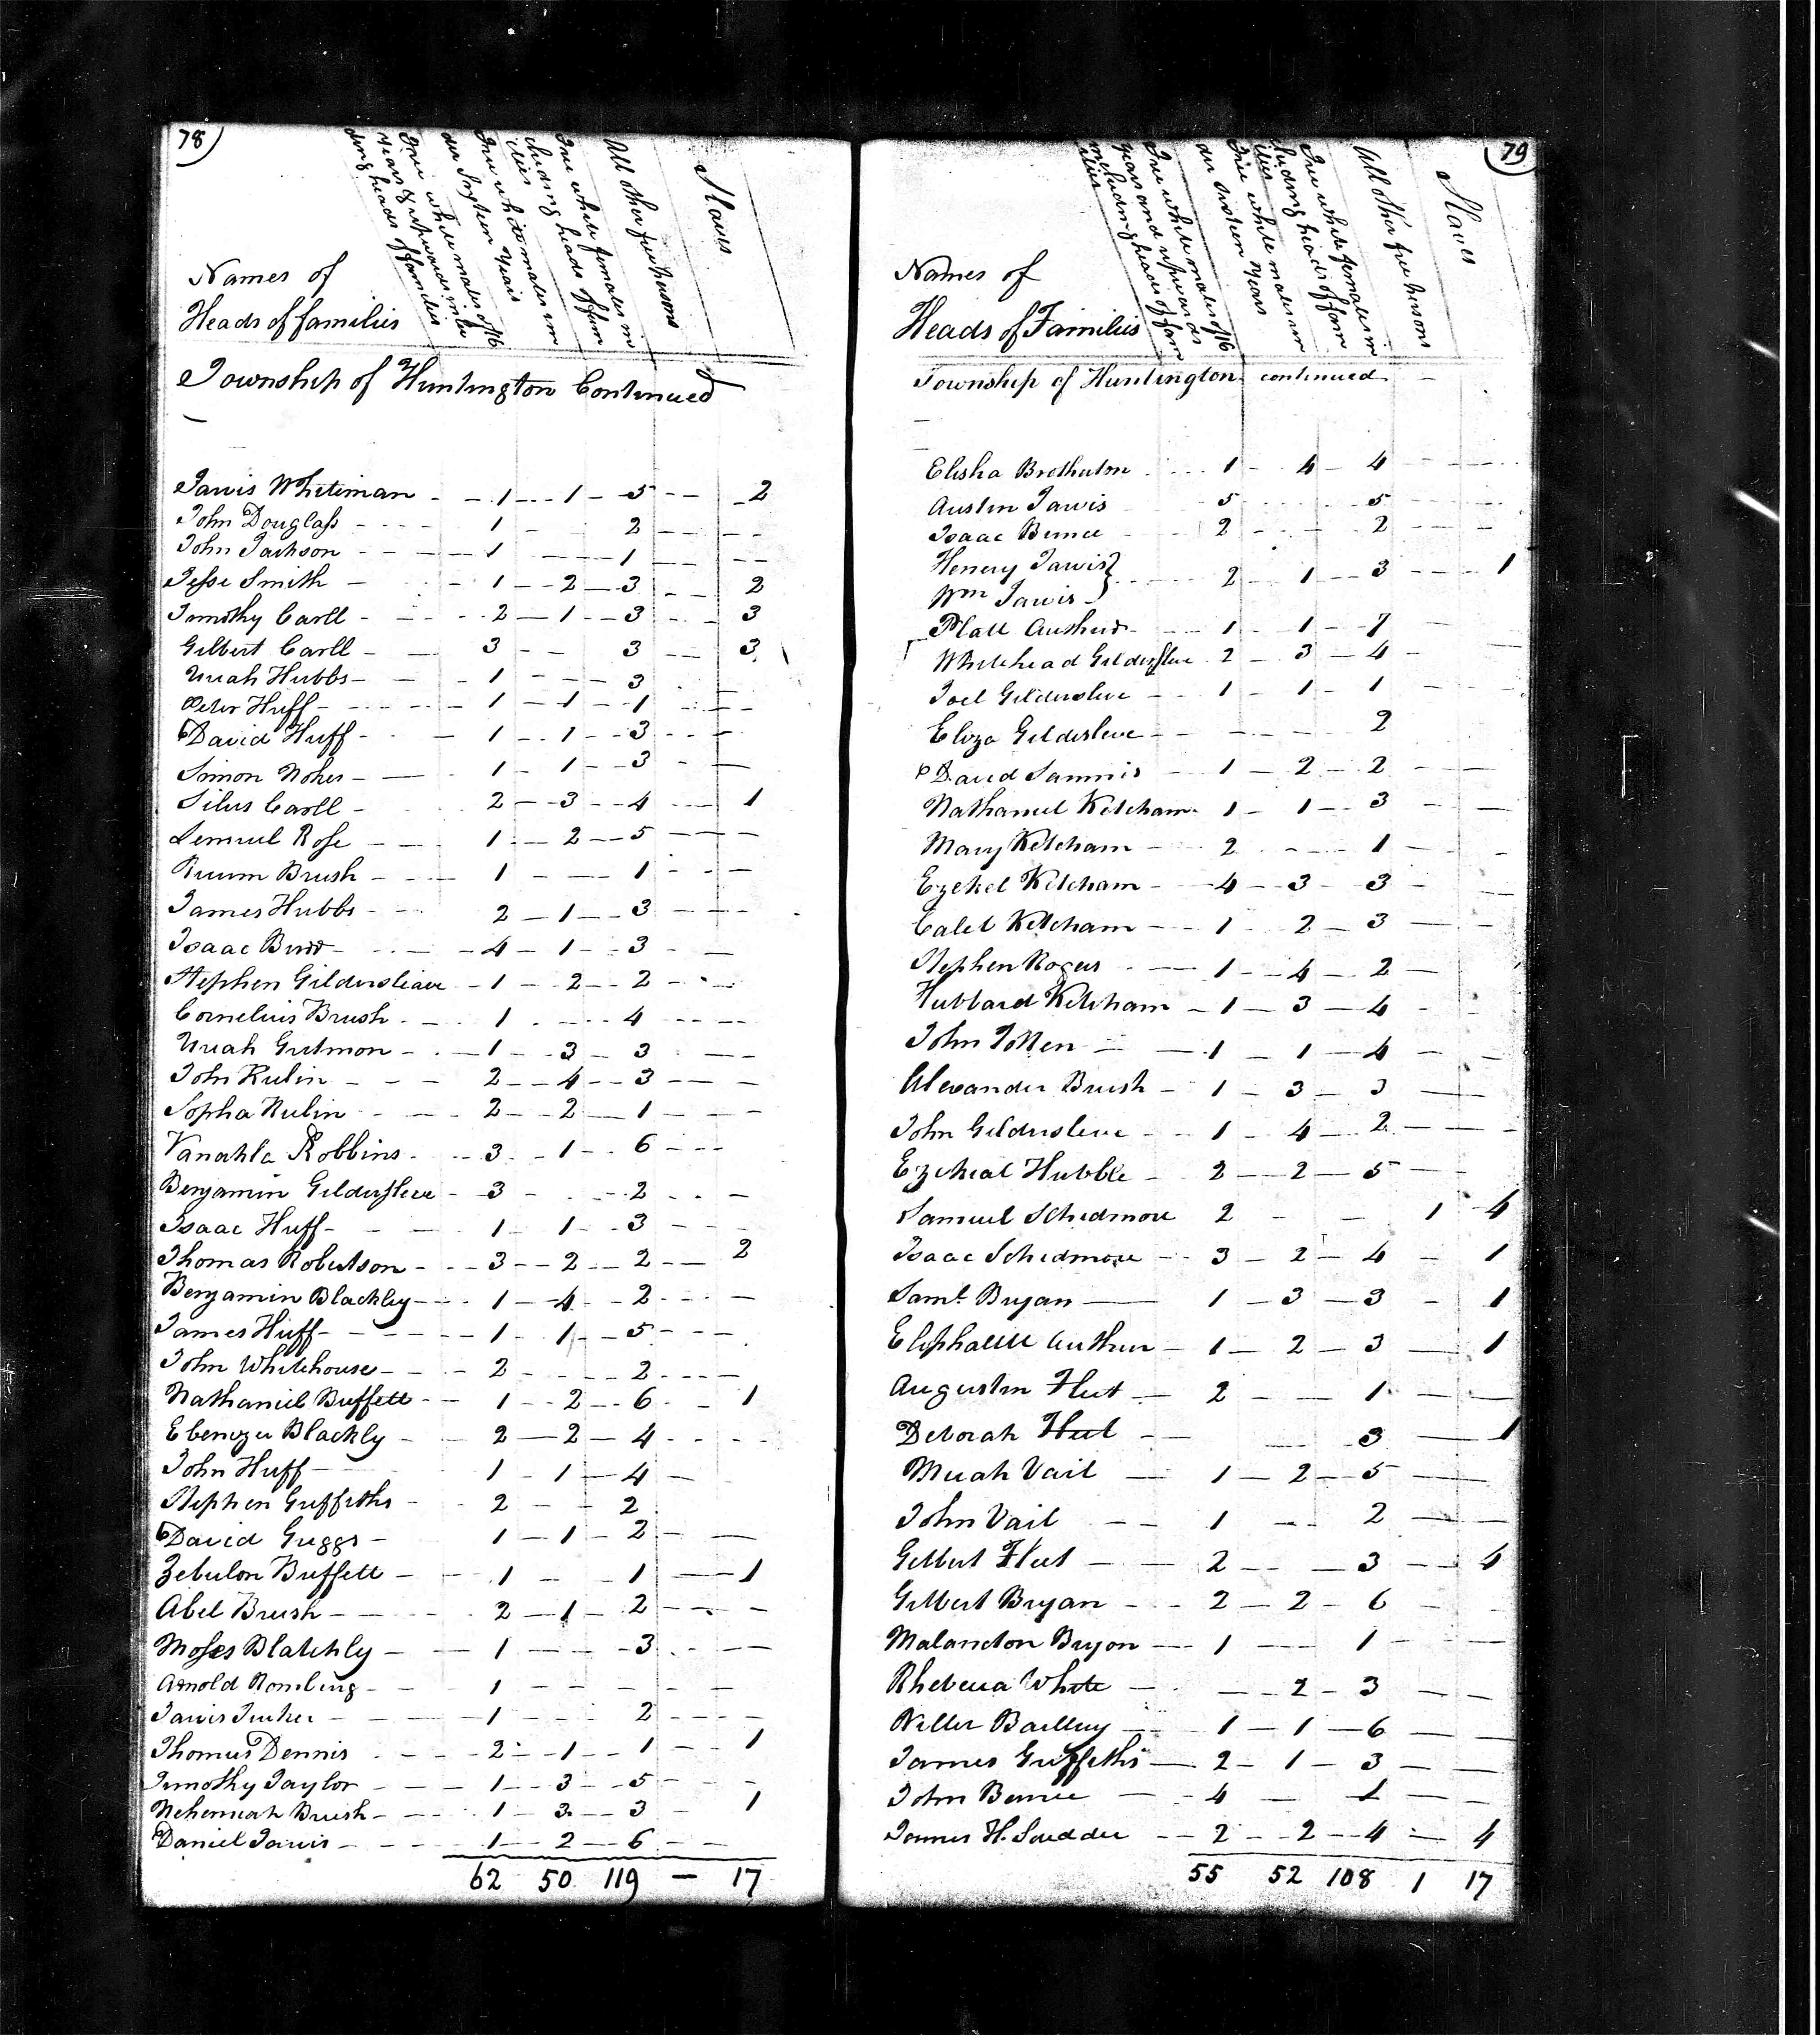 78
Free white males of 16
years & upwards inclu
ding heads of families
Free white males un
der Sixteen years
Free white females in
cluding heads of fam
ilies
All other free Persons
Slaves
Names of
Heads of families
Township of Huntington Continued
Jarvis Whiteman - - 1 - - 1 - 5 - - - 2
John Douglass - - - - 1 - 2 - - -
John Jackson - - - - 1 - - - 1 - -
Jesse Smith - - 1 - 2 - 3 - - 2
Timothy Carll - - 2 - 1 - - 3 - - 3
Gilbert Carll - - 3 - - 3 - - 3
Uriah Hubbs - - 1 - - - 3 - -
Peter Huff - - - 1 - 1 - 1 - - -
David Huff - - 1 - - 1 - - 3 - - -
Simon Nokes - - 1 - 1 - - 3 - -
Silus Carll - 2 - - 3 - - 4 - - 1
Lemuel Rose - - 1 - - 2 - - 5 - - -
Brush - - - 1 - - - 1 - - -
James Hubbs - - 2 - 1 - - 3 - - -
Isaac - - - 4 - 1 - - 3 - -
Stephen Gildersleave - 1 - - 2 - - 2 - - -
Cornelius Brush - - 1 - - - 4 - - - -
Uriah - - - 1 - - 3 - 3 - - -
John Rulin - - - 2 - - 4 - - 3 - - -
Sopha Rulin - - - 2 - - 2 - 1 - - -
Robbins - - - 3 - - 1 - - 6 - - -
Benjamin Gildersleve - 3 - - - 2 - - -
Isaac Huff - - 1 - 1 - - 3 - - -
Thomas Robertson - - - 3 - - 2 - - 2 - - 2
Benjamin Blackley - - - 1 - 4 - - 2 - - - -
James Huff - - - - - 1 - 1 - - 5 - - -
John Whitehouse - - - 2 - - - 2 - - - -
Nathaniel Buffett - - 1 - - 2 - - 6 - - 1
Ebenezer Blackly - - 2 - 2 - 4 - - - -
John Huff - 1 - 1 - 4 -
Stephen Griffiths - - 2 - - 2
David Griggs - 1 - 1 - 2 - -
Zebulon Buffett - - 1 - - 1 - - 1
Abel Brush - - - - 2 - 1 - 2 - - -
Moses Blatchly - - 1 - - - 3 - - -
Arnold - - - 1 - - - - -
Jarvis - - - 1 - - - 2 - - - -
Thomas Dennis - - - 2 - - 1 - - 1 - - - 1
Timothy Taylor - - - 1 - - 3 - - 5 - - -
Nehemiah Brush - - - - 1 - - 3 - - 3 - 1
Daniel Jarvis - - - - 1 - - 2 - - 6 - -
62 50 119 - 17
79
Free white males of 16
years and upwards
including heads of fam
ilies
Free white males un
der Sixteen years
Free white females in
cluding heads of fam
ilies
All other free persons
Slaves
Names of
Heads of Families
Township of Huntington continued -
Elisha Brotherton - - - 1 - 4 - 4 - - -
Austin Jarvis 5 - - - 5 - - - -
Isaac Bunce - 2 - - - 2 - - -
Henery Jarvis }
Wm Jarvis } - - - 2 - 1 - - 3 - - - 1
Platt - - - 1 - 1 - - 7 -
Whitehead Gildersleve 2 - 3 - 4 - -
Joel Gildersleve - - - 1 - 1 - 1 - -
Gildersleve - - - - - 2
David Sammis - 1 - 2 - 2 - -
Nathaniel Ketcham - 1 - 1 - - 3 - -
Mary Ketcham - - 2 - - - 1 - -
Ezekel Ketcham - - 4 - 3 - 3 - -
Caleb Ketcham - - - 1 - 2 - 3 - -
Stephen Rogers - - 1 - 4 - 2 -
Hubbard Ketcham - 1 - 3 - 4 - -
John Totten - - 1 - 1 - 4 - -
Alexander Brush - 1 - 3 - 3 -
John Gildersleve - - 1 - 4 - 2 - - -
Ezekial Hubble - 2 - - 2 - 5 - -
Samuel Schidmore 2 - - 1 4
Isaac Schidmore - - 3 - 2 - 4 - 1
Saml. Bryan - 1 - 3 - 3 - 1
Arthur - 1 - 2 - 3 - 1
Augustin Fleet - 2 - - 1 - -
Deborah Fleet - - - 3 - 1
Micah Vail - 1 - 2 - 5 - -
John Vail - - 1 - - 2 - -
Gilbert Fleet - - 2 - - - 3 - - 4
Gilbert Bryan - - - 2 - 2 - 6 - -
Malancton Bryon - - - 1 - - - 1 - - -
White - - - 2 - 3 - -
- - 1 - 1 - 6 - -
James Griffiths - 2 - 1 - 3 - -
John Bunce - - - 4 - 1 - - -
James H. Scudder - - 2 - - 2 - 4 - - 4
55 52 108 1 17